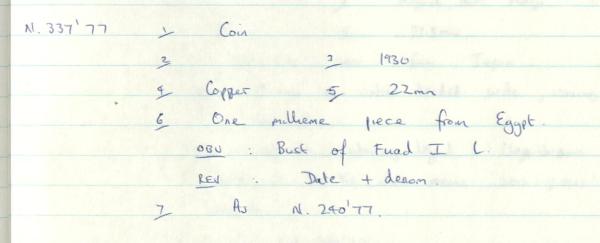 N. 337'77 1/ Coin
2/ 3/ 1930
4/ Copper 5/ 22mm
6/ One millieme piece from Egypt.
OBV : Bust of Fuad I L.
REV : Date + denom
7/ As N. 240'77.